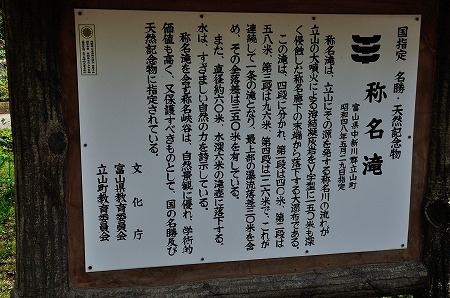 国指定 名勝・天然記念物
称名滝
富山県中新川郡立山町
昭和四八年五月二九日指定
称名滝は、立山にその源を発する称名川の流れが
立山の大噴火による溶結凝灰岩をV字型に一五〇米も深
く侵蝕した称名廊下の末端から落下する大瀑布である。
この滝は、四段に分かれ、第一段は四〇米、第二段は
五八米、第三段は九六米、第四段は一二六米で、これが
連続して一条の滝となり、最上部の瀑流落差三〇米を含
め、その全落差は三五〇米を有している。
また、直径約六〇米、水深六米の滝壺に落下する
水は、すさまじい自然の力を誇示している。
称名滝を含む称名峡谷は、自然景観に優れ、学術的
価値も高く、又保護すべきものとして、国の名勝及び
天然記念物に指定されている。
文化庁
富山県教育委員会
立山町教育委員会